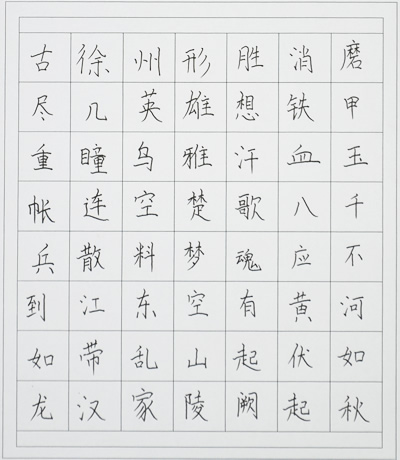 古徐州形胜消磨
尽几英雄想铁甲
重瞳乌骓汗血玉
帐连空楚歌八千
兵散料梦魂应不
到江东空有黄河
如带乱山起伏如
龙汉家陵阙起秋